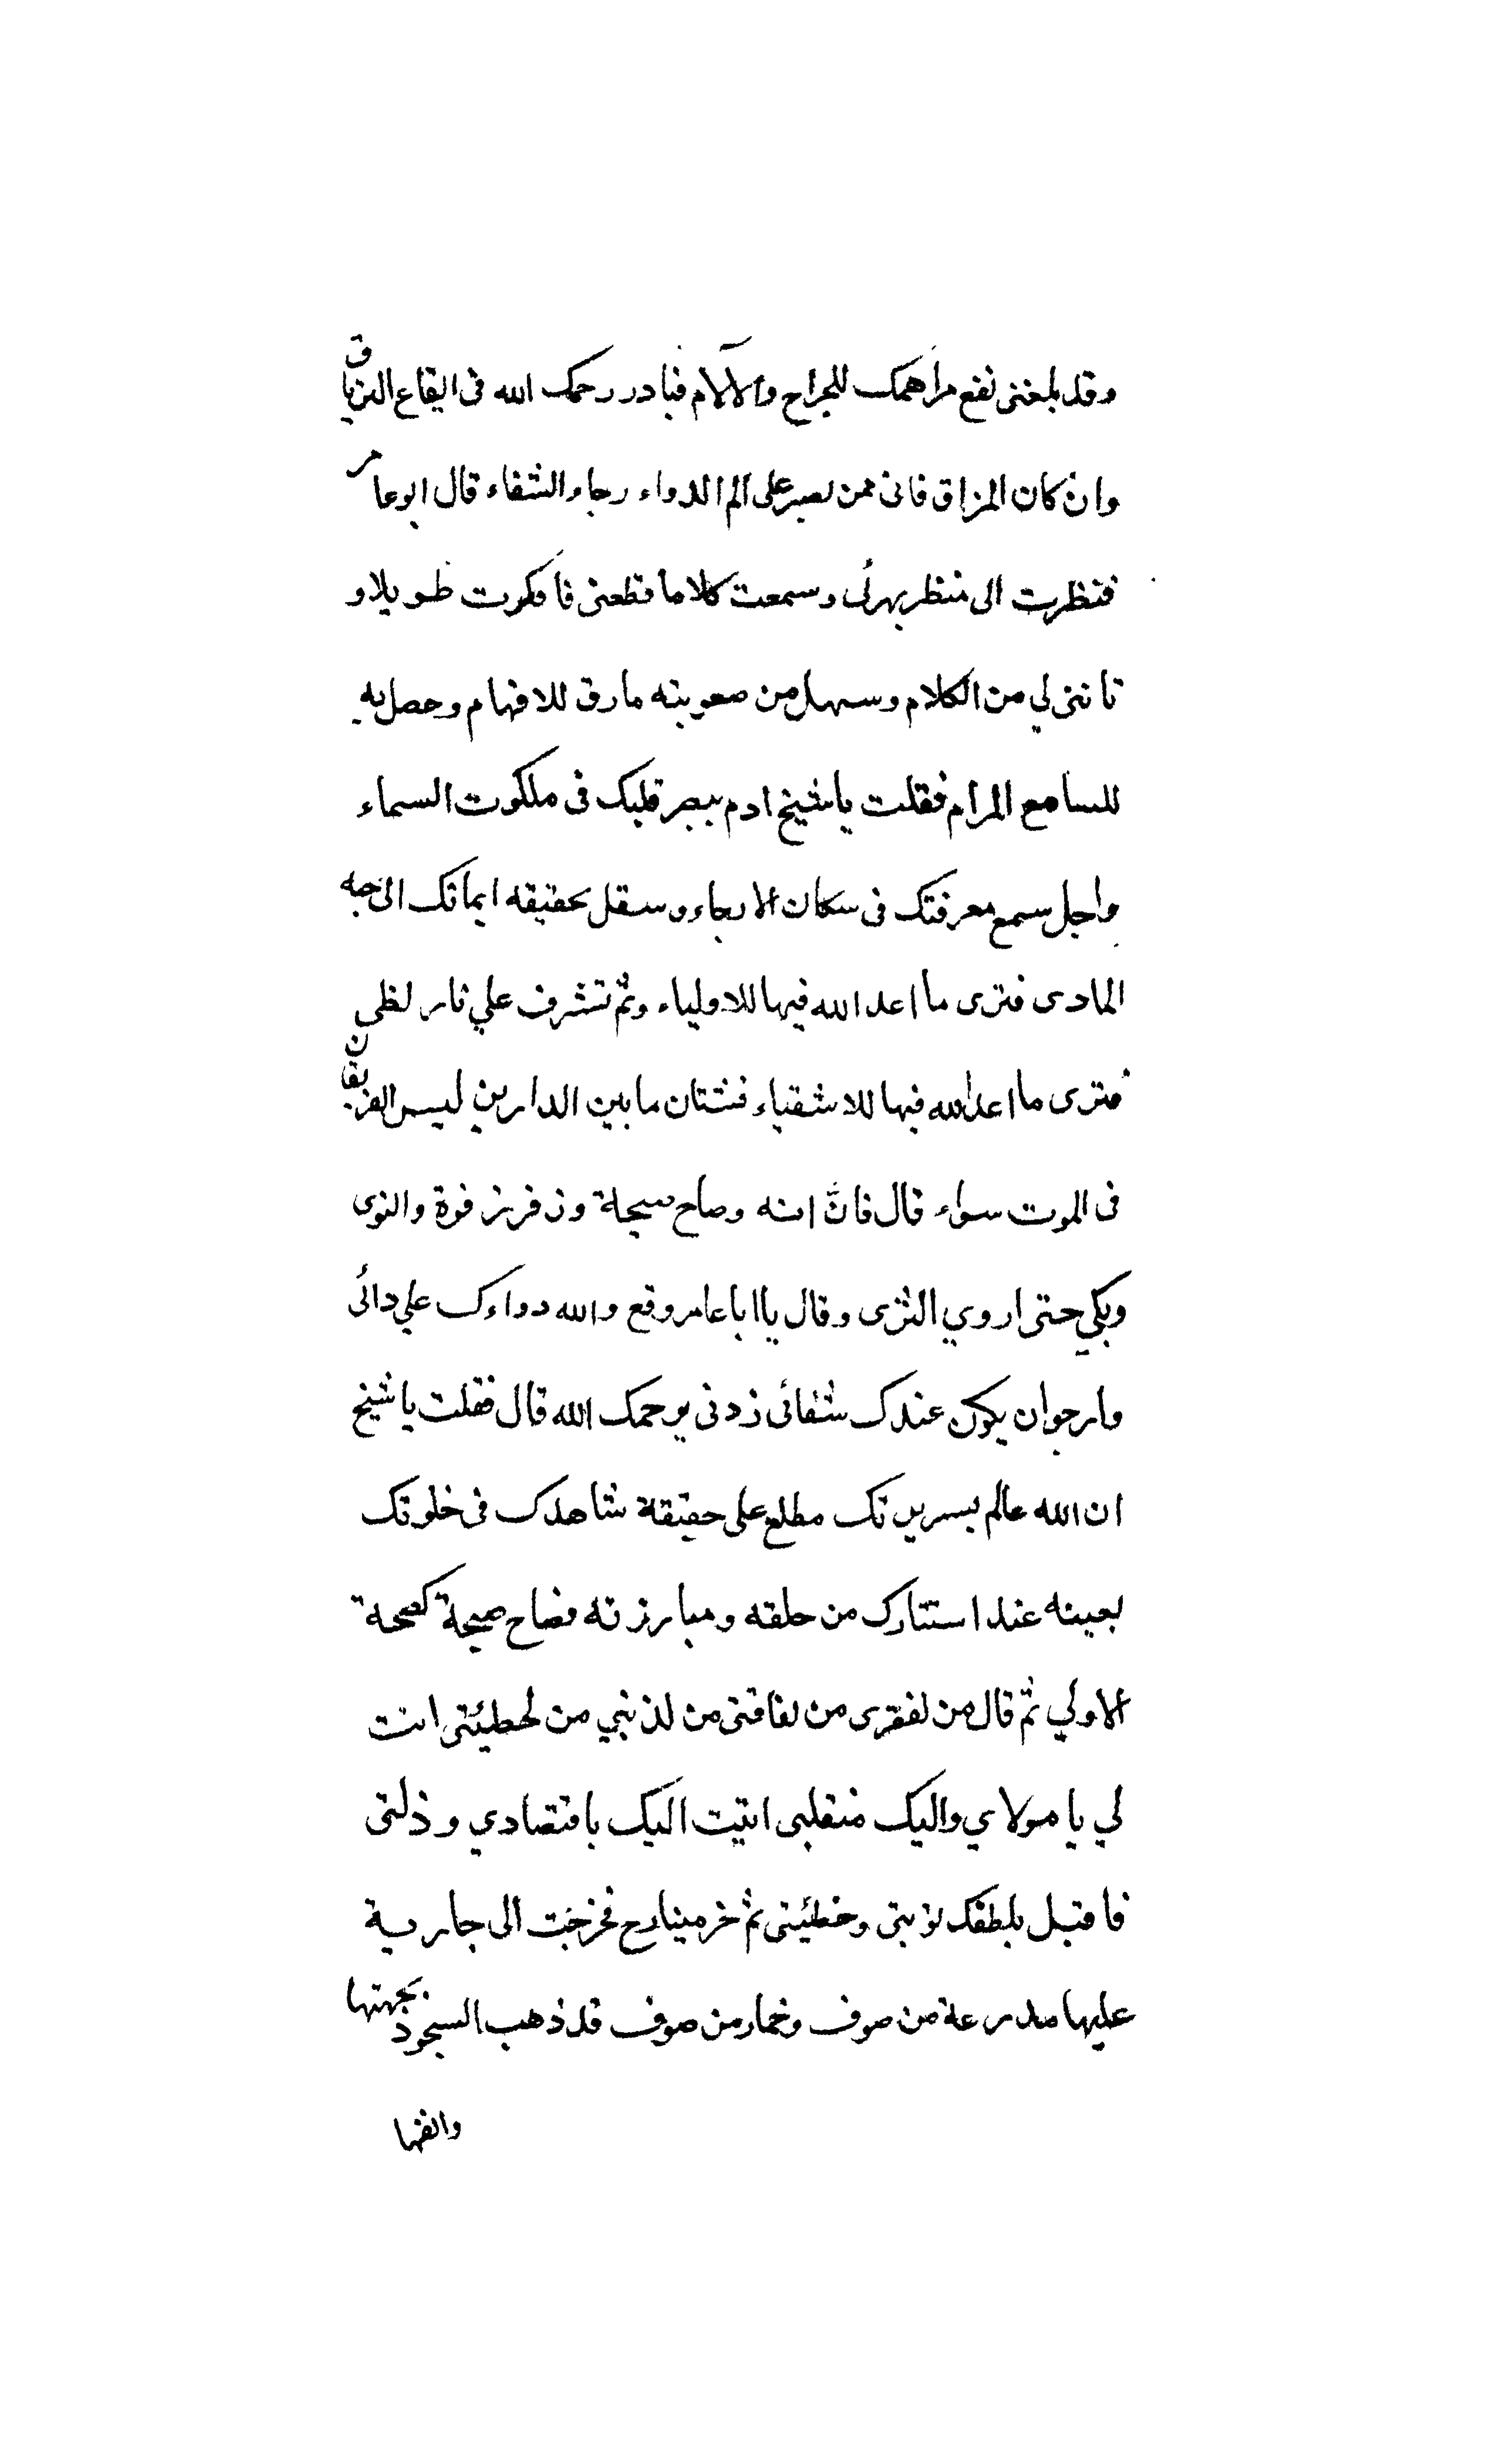 وقد بلغنى نفع مراهمك للجراح والآلام فبادر رحمك الله فى ايقاع الترياق
وان كان المزاق فانى ممن يصبر على الم الدواء رجاء الشفاء قال ابو عامر
فنظرت الى منظر بهرنى وسمعت كلاما قطعنى فافكرت طويلا و
تانثى لي من الكلام وسهل من صعوبته مارق للافهام وحصل به
للسامع المرام فقلت يا شيخ ادم ببصر قلبك فى ملكوت السماء
واجل سمع معرفتك فى سكان الارجاء وسقل بحقيقة ايمانك الى جنه
المادى فترى ما اعد الله فيها للاولياء وثم تشرف علي نار لظى
فترى ما اعد الله فيها للاشقياء فشتان ما بين الدارين ليس الفريقان
فى الموت سواء قال فانّ انه وصاح صيحة وزفر زفرة والتوى
وبكي حتى اروي الثرى وقال يا ابا عامر وقع والله دواءك علي دائى
وارجو ان يكون عندك شفائى زدنى يرحمك الله قال فقلت يا شيخ
ان الله عالم بسريرتك مطلع على حقيقة شاهدك فى خلوتك
بعينه عند استتارك من خلقه ومبارزته فصاح صيحة كصيحة
الاولي ثم قال من لفقرى من لفاقتى من لذنبي من لخطيئتى انت
لي يا مولاي واليك منقلبى اتيت اليك باقتصادي وذلتى
فاقبل بلطفك توبتى وخطيئتى ثم خر ميتا رح فخرجت الى جارية
عليها مدرعة من صوف وخمار من صوف قد ذهب السجود بجبهتها
وانفها